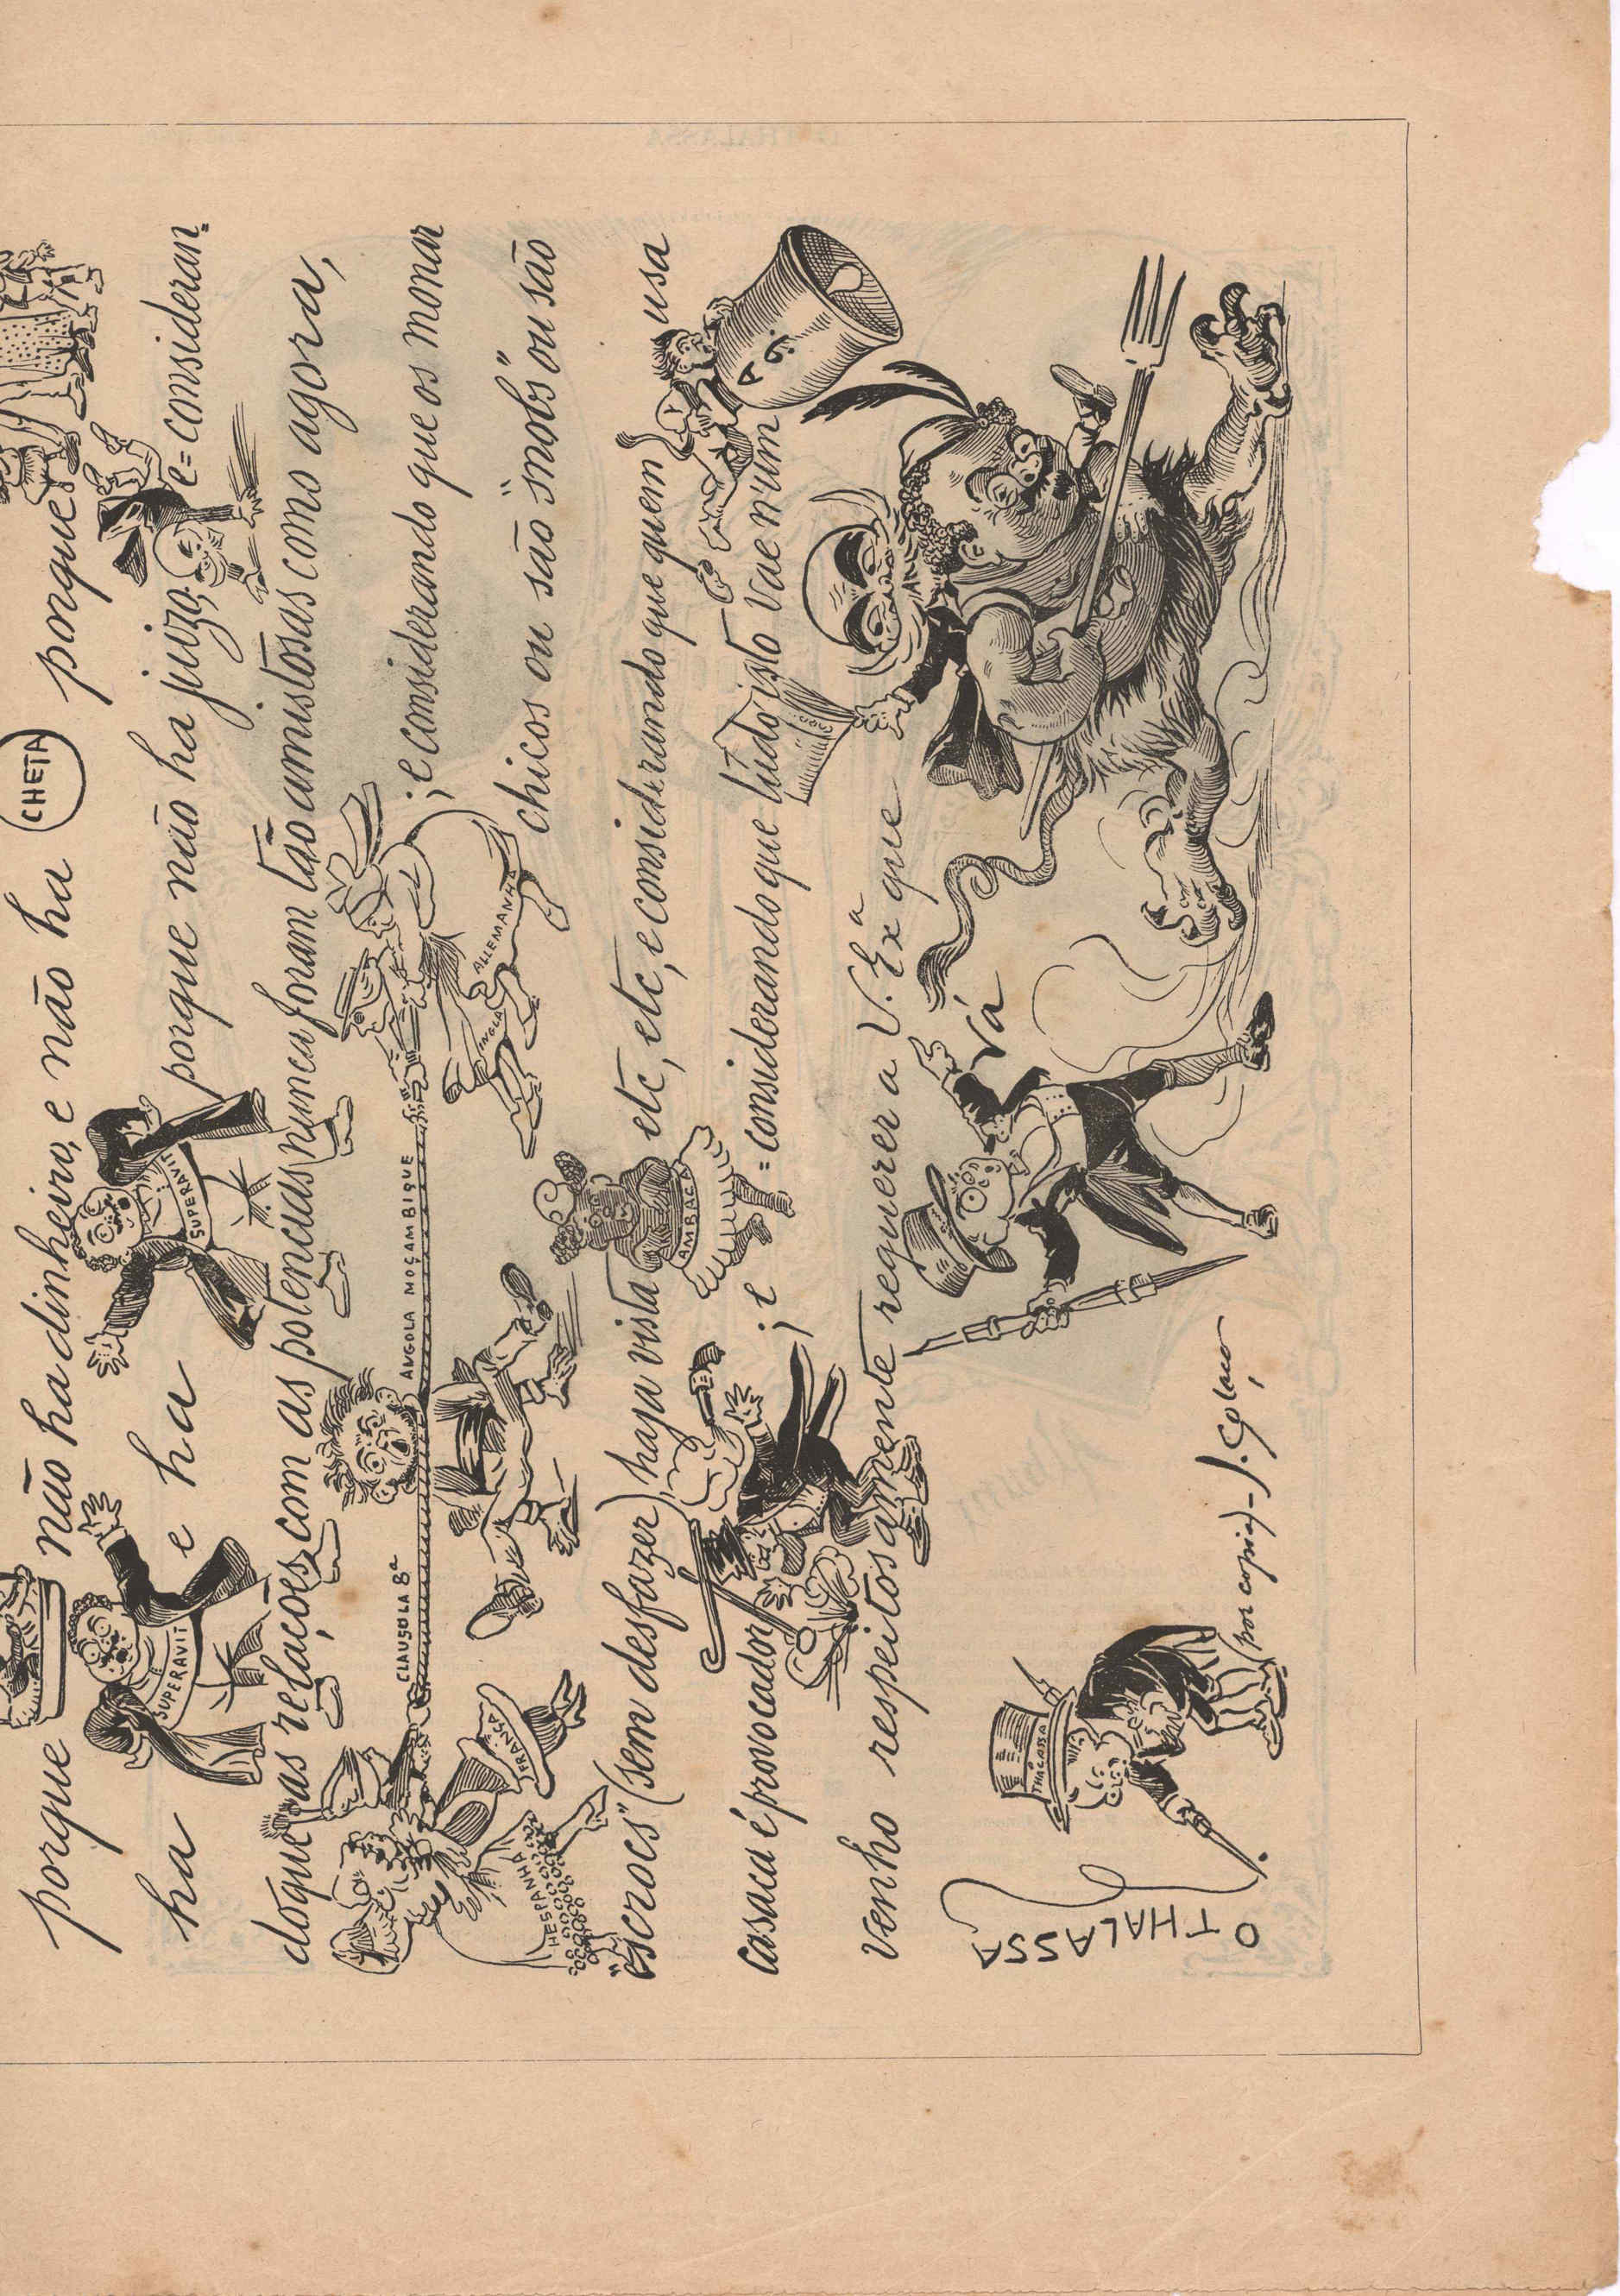 CHETA
porque não ha dinheiro, e não ha porque
SUPERAVIT
SUPERAVIT
ha e ha porque não ha juizo; e = consideran=
do que as relações com as potencias nunca foram tão amistosas como agora,
HESPANHA
FRANSA
CLAUSULA 8ª
ANGOLA MOÇAMBIQUE
INGLA
ALLEMANHA
; e considerando que os monar
chicos ou são "snobs" ou são
"escrocs" (sem desfazer) haja vista etc, etc, etc, e considerando que quem usa
AMBACA
A G.
casaca é provocador ; e = considerando que tudo isto vae n'um
venho respeitosamente requerer a V. Exª que
vá
THALASSA
O THALASSA
(por copia) - J. Colaço